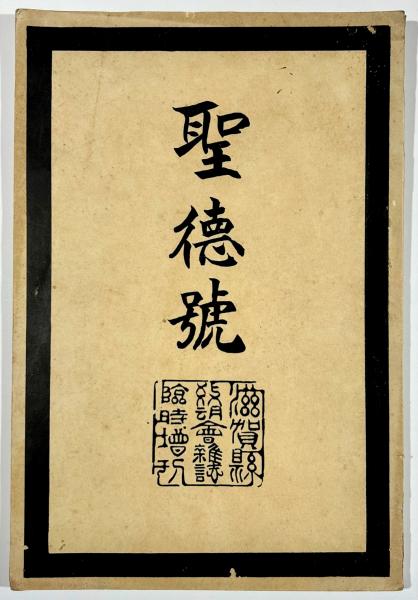 聖德號
滋賀縣
敎育會雜誌
臨時增刊